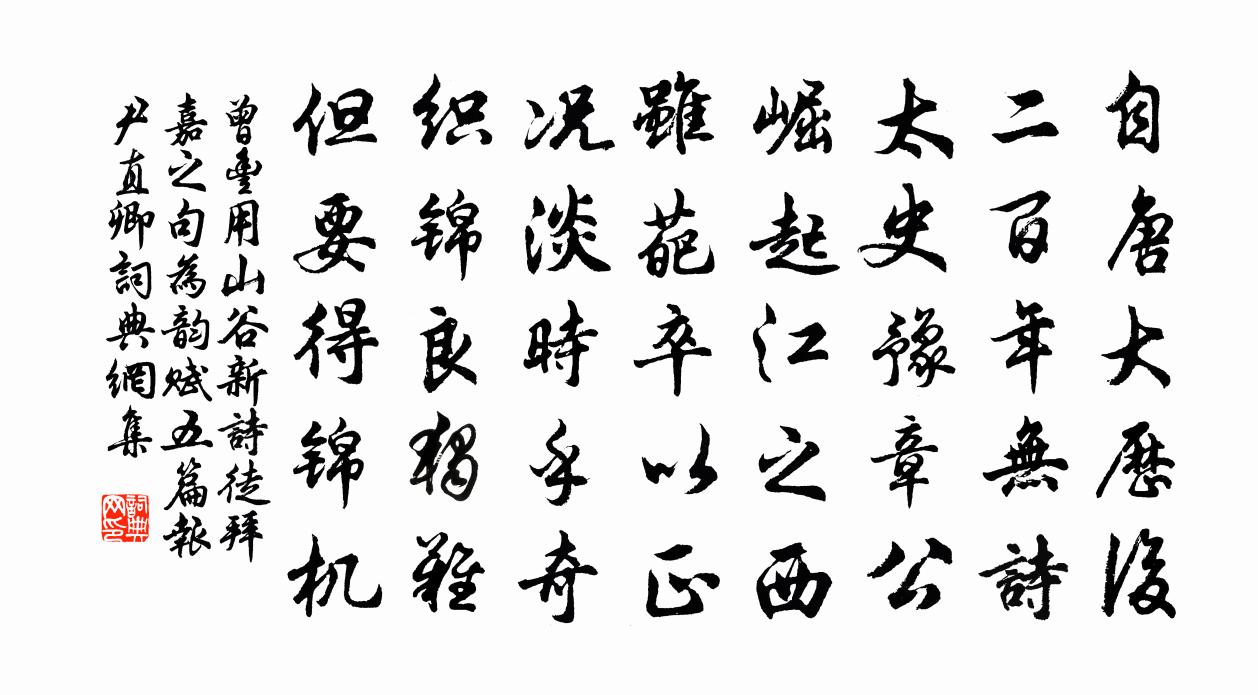 自唐大歷後
二百年無詩
太史豫章公
崛起江之西
雖葩卒以正
况淡時乎奇
织锦良獨難
但要得锦机
曾豐用山谷新詩徒拜
嘉之句為韵赋五篇報
尹直卿詞典網集
詞典网印